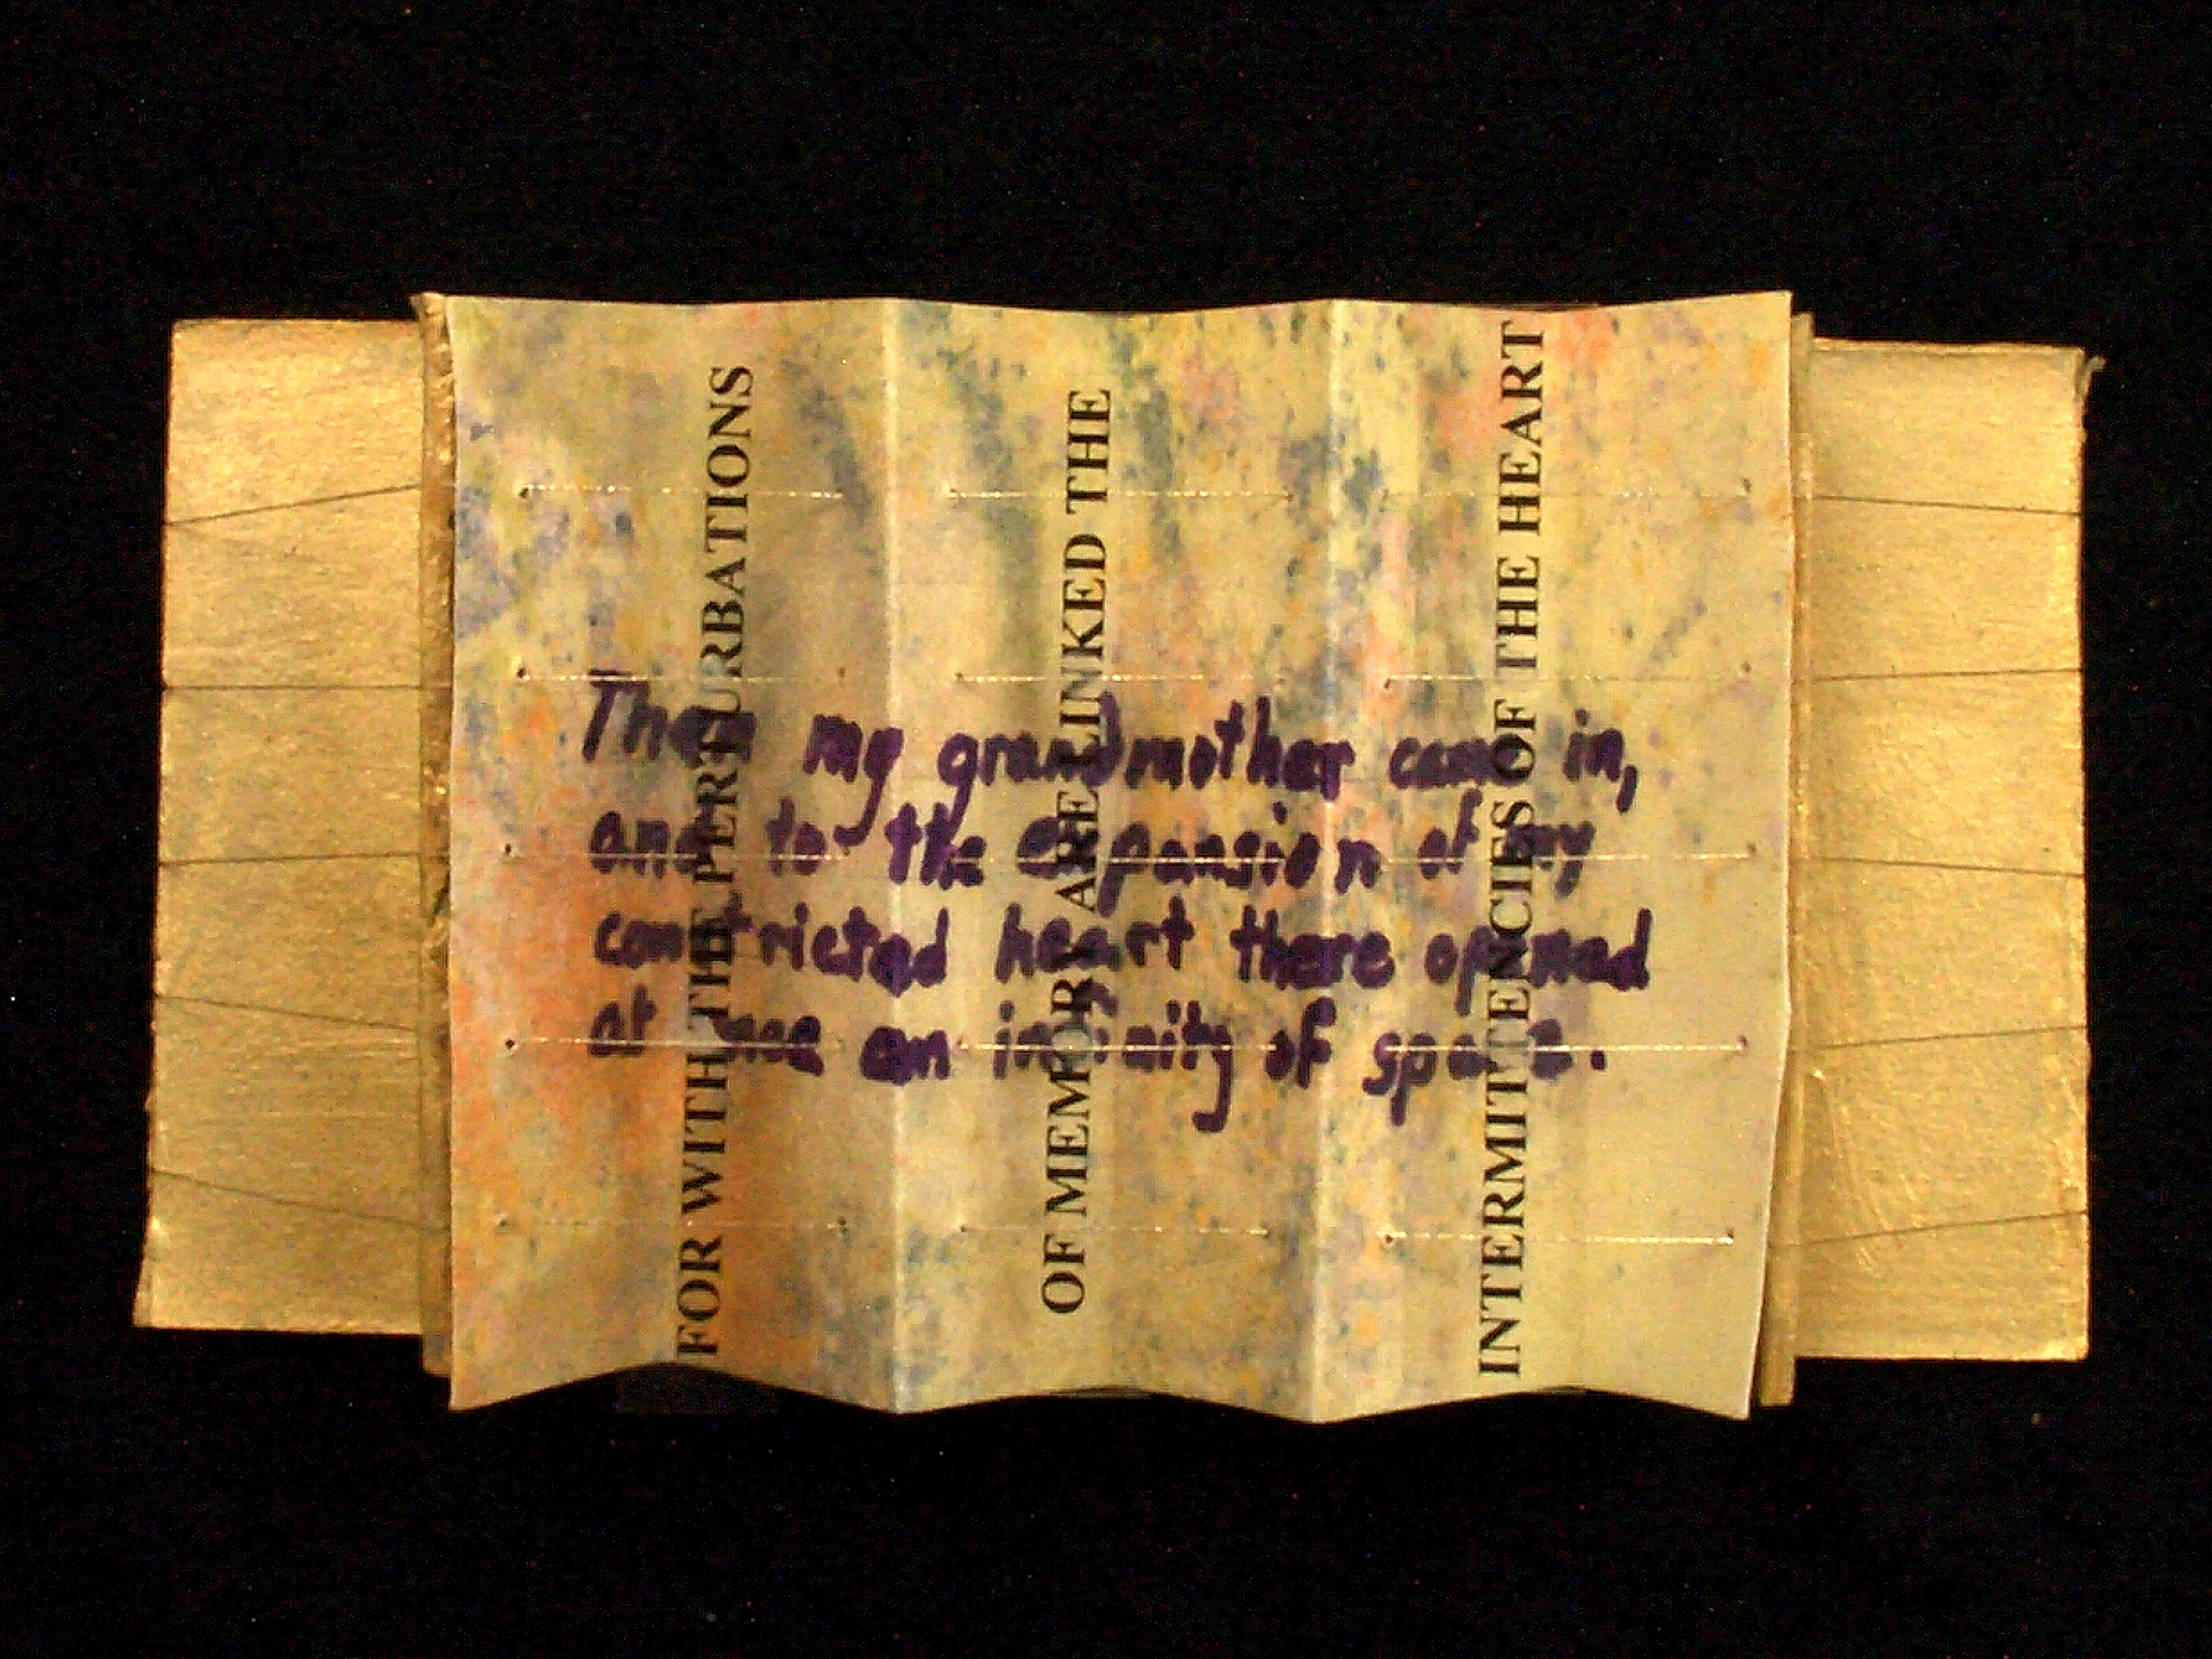 FOR WITH THE PERTURBATIONS
OF MEMORY ARE LINKED THE
INTERMITTENCIES OF THE HEART
Then my grandmother came in,
and to the expansion of my
constricted heart there opened
at one an infinity of space.